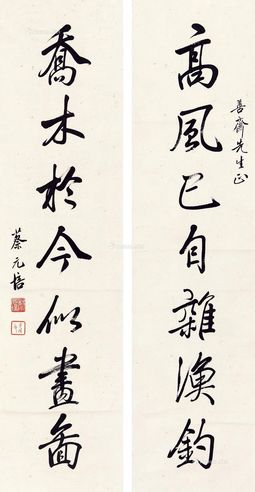 高風已自雜漁釣
善齋先生正
喬木於今似畫圖
蔡元培